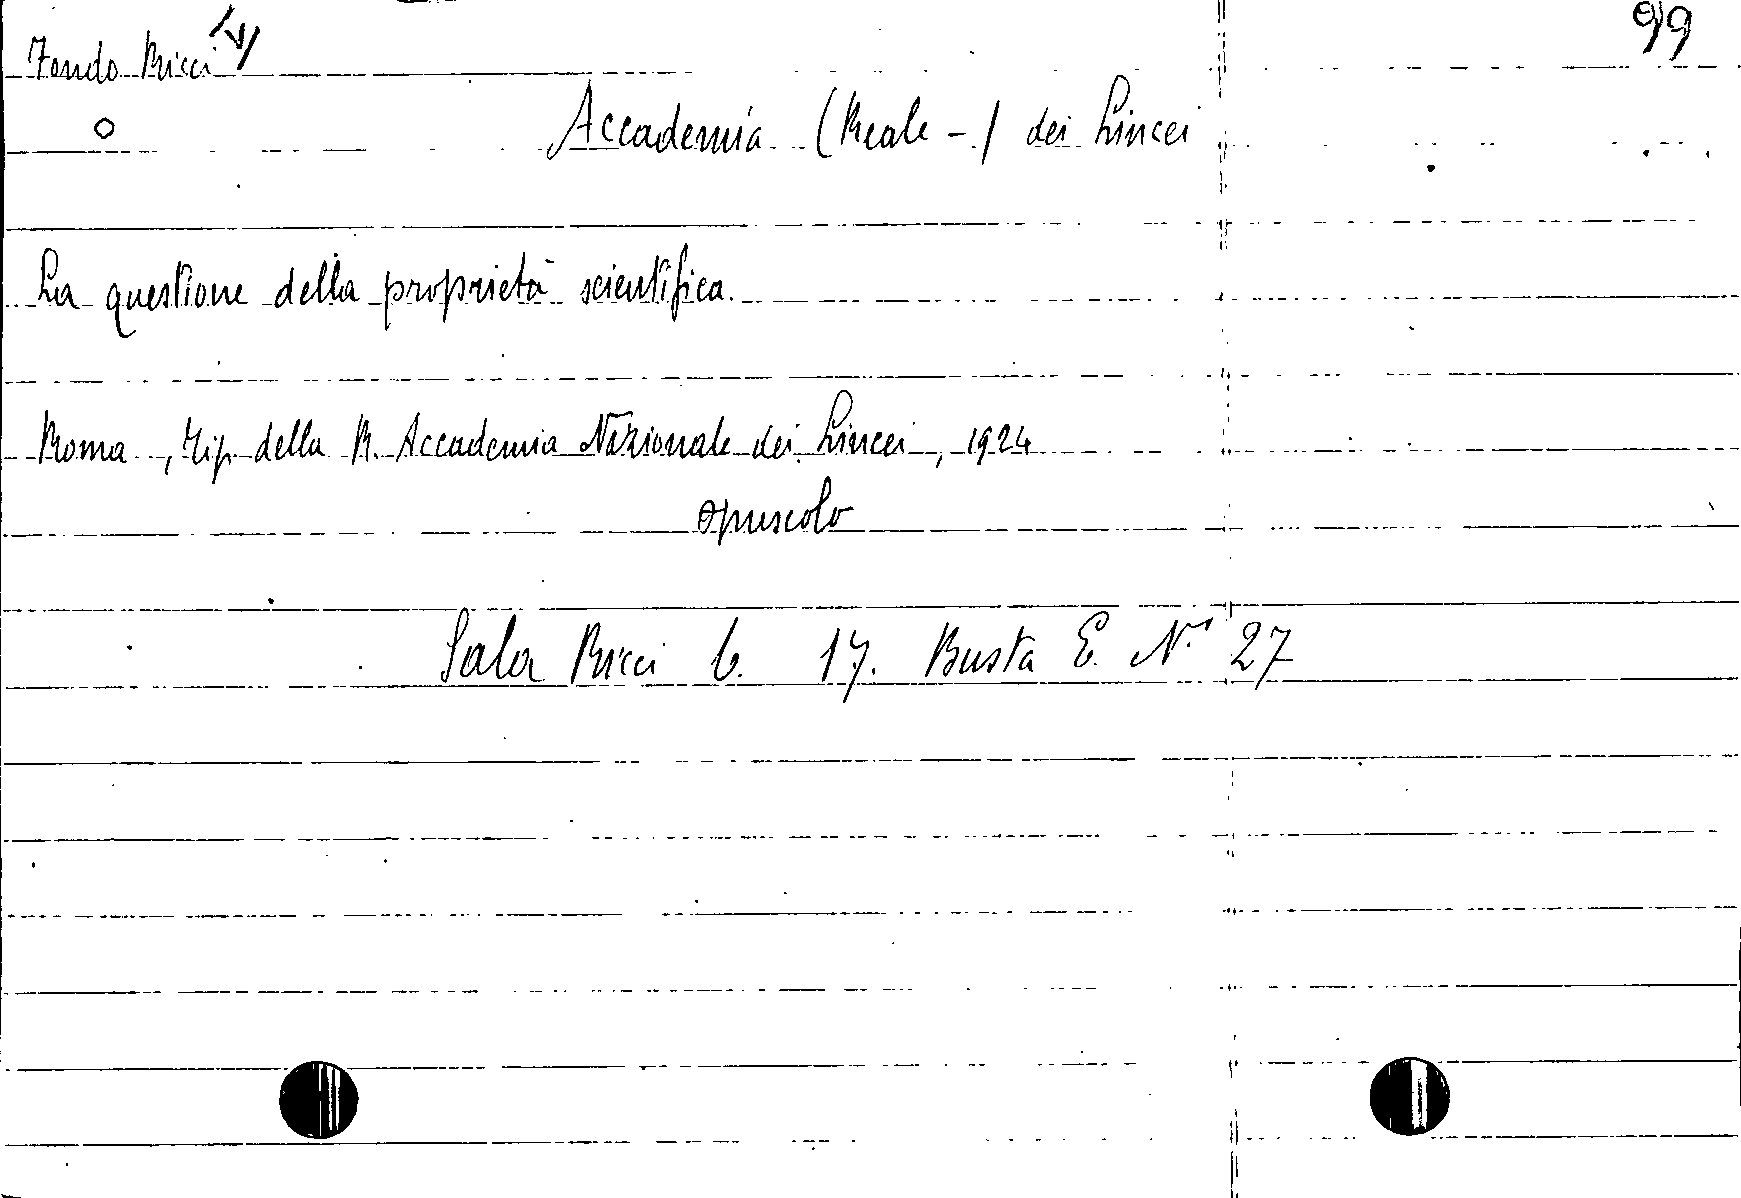 99
Fondo Ricci
Accademia (Reale -) dei Lincei
La questione della proprietà scientifica.
Roma, Tip. della R. Accademia Nazionale dei Lincei, 1924
opuscolo
Sala Ricci 6. 17. Busta E. N. 27